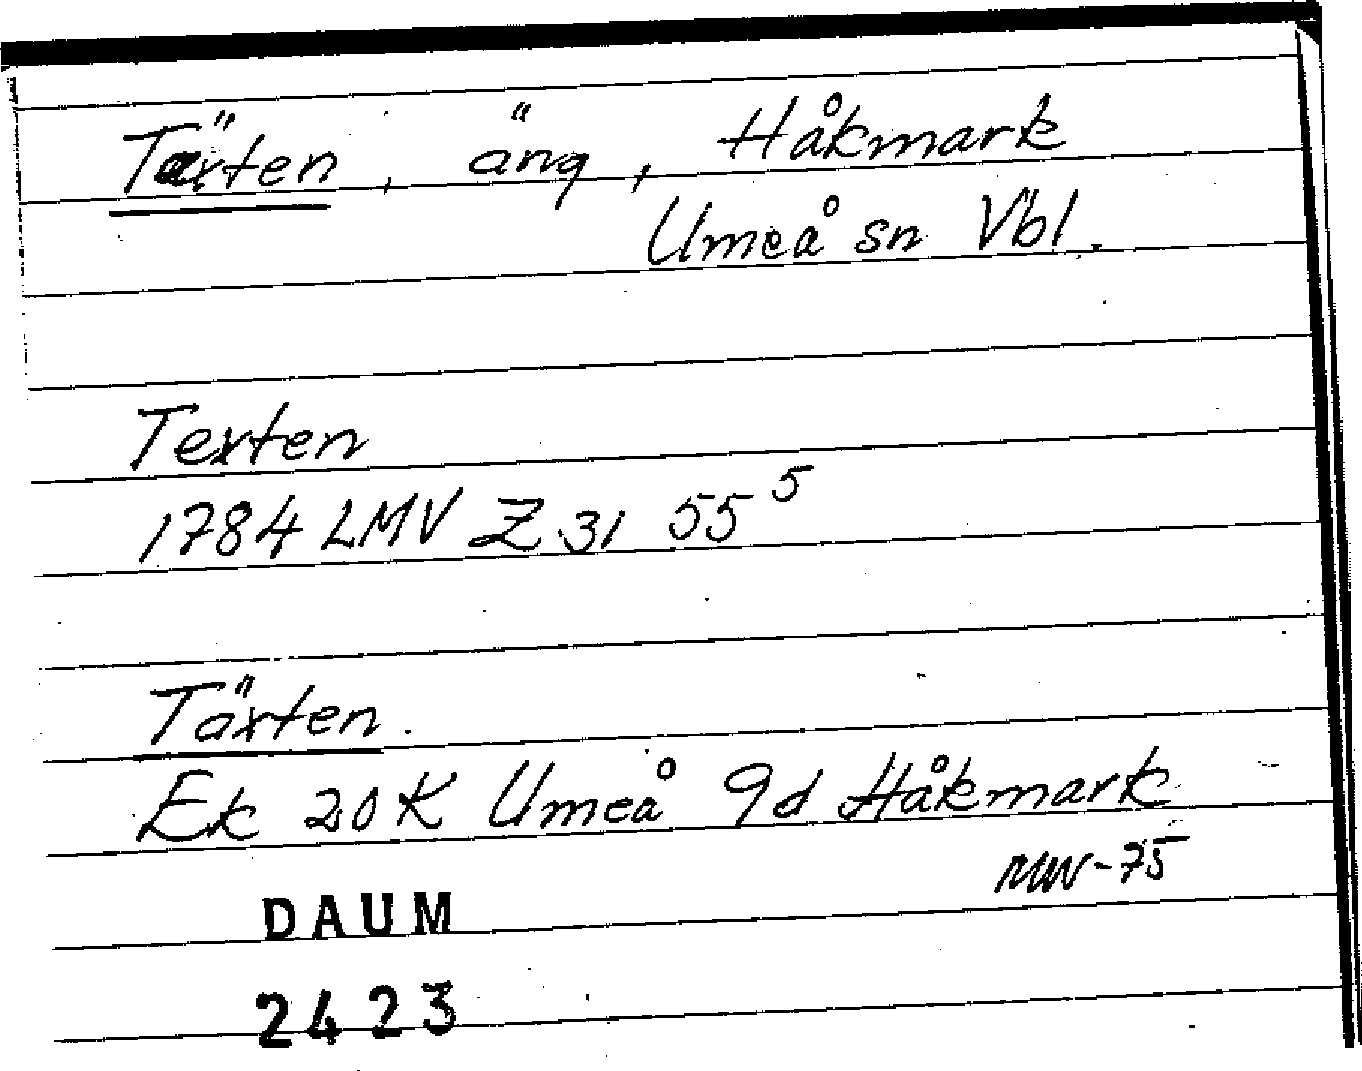 Täxten, äng, Håkmark
Umeå sn Vbl.
Texten
1784 LMV Z 31 55⁵
Täxten.
Ek 20K Umeå 9d Håkmark
-75
DAUM
2423